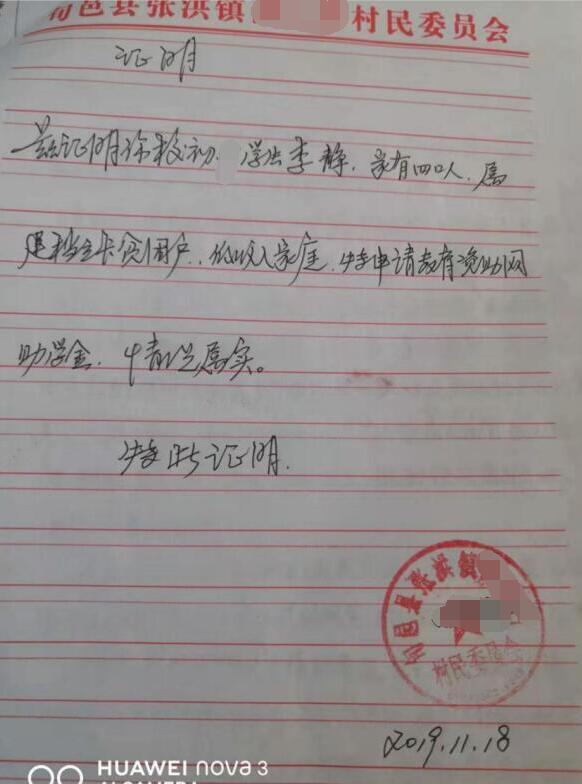 旬邑县张洪镇 村民委员会
证明
兹证明 学生李静，家有四口人，属
建档立卡贫困户，低收入家庭，特申请教育资助网
助学金，情况属实。
特此证明.
旬邑县张洪镇
村民委员会
2019.11.18
HUAWEI nova 3
AI CAMERA